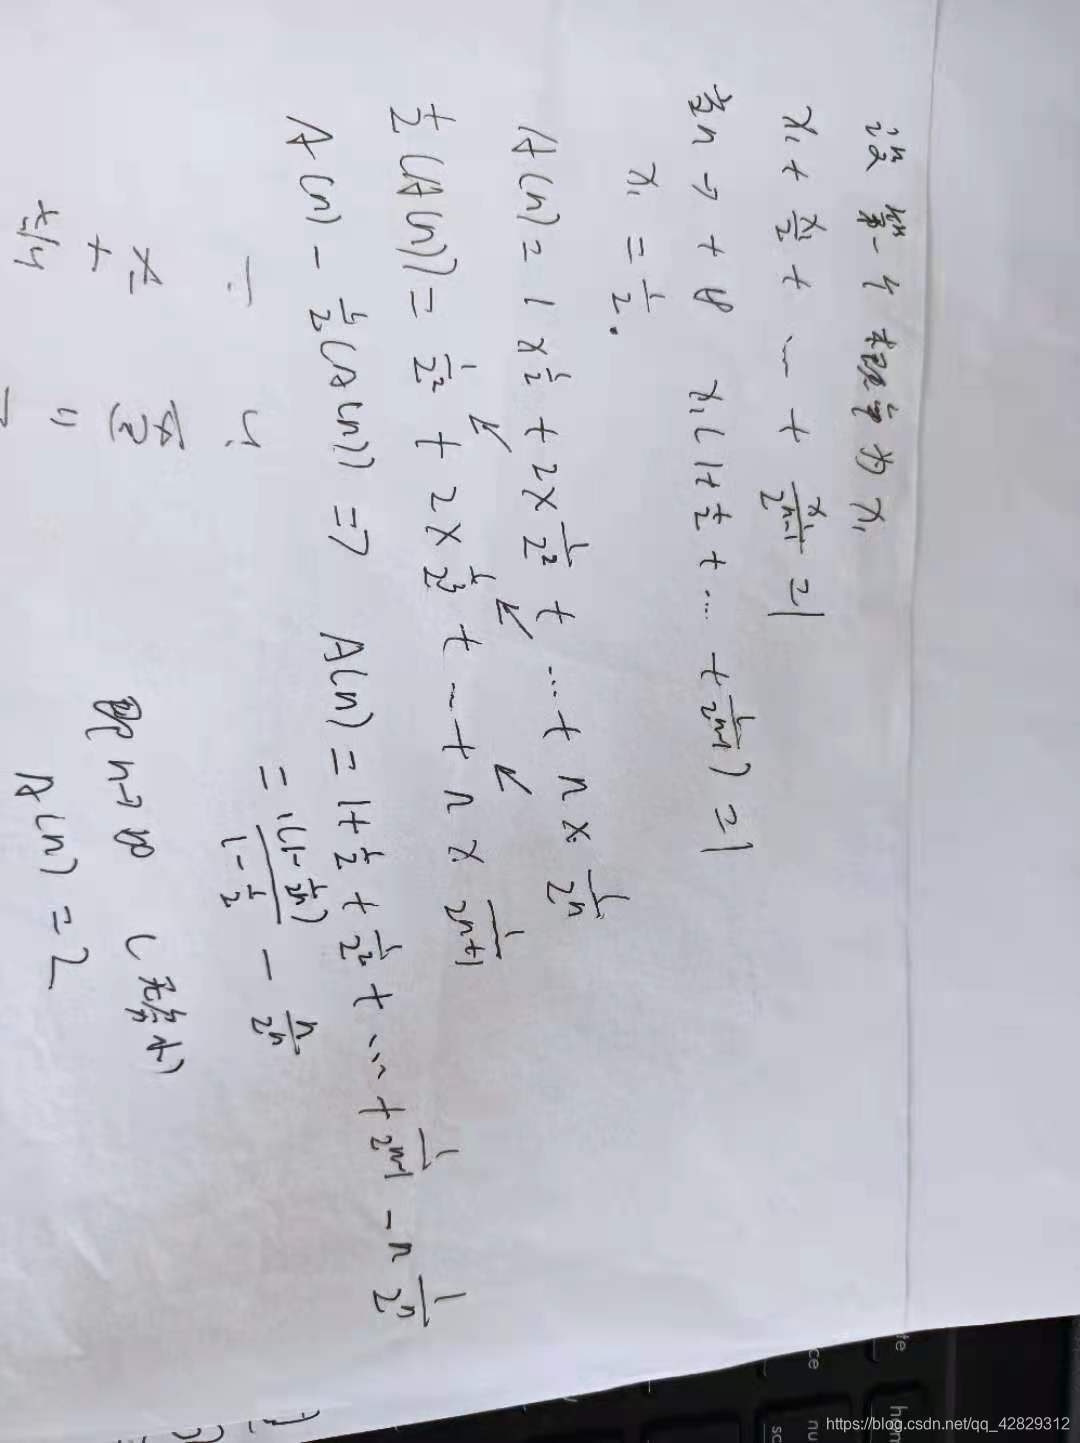 设第一个概率为 x₁
x₁ + x₁/2 + … + x₁/2ⁿ⁻¹ = 1
当n → +∞ x₁(1+1/2+…+1/2ⁿ⁻¹) = 1
x₁ = 1/2.
A(n) = 1×1/2 + 2×1/2² + … + n×1/2ⁿ
1/2(A(n)) = 1/2² + 2×1/2³ + … + n×1/2ⁿ⁺¹
A(n) - 1/2(A(n)) => A(n) = 1+1/2+1/2²+…+1/2ⁿ⁻¹ - n 1/2ⁿ
= 1(1-1/2ⁿ)/(1-1/2) - n/2ⁿ
n→∞ (无穷大)
A(n) = 2
https://blog.csdn.net/qq_42829312